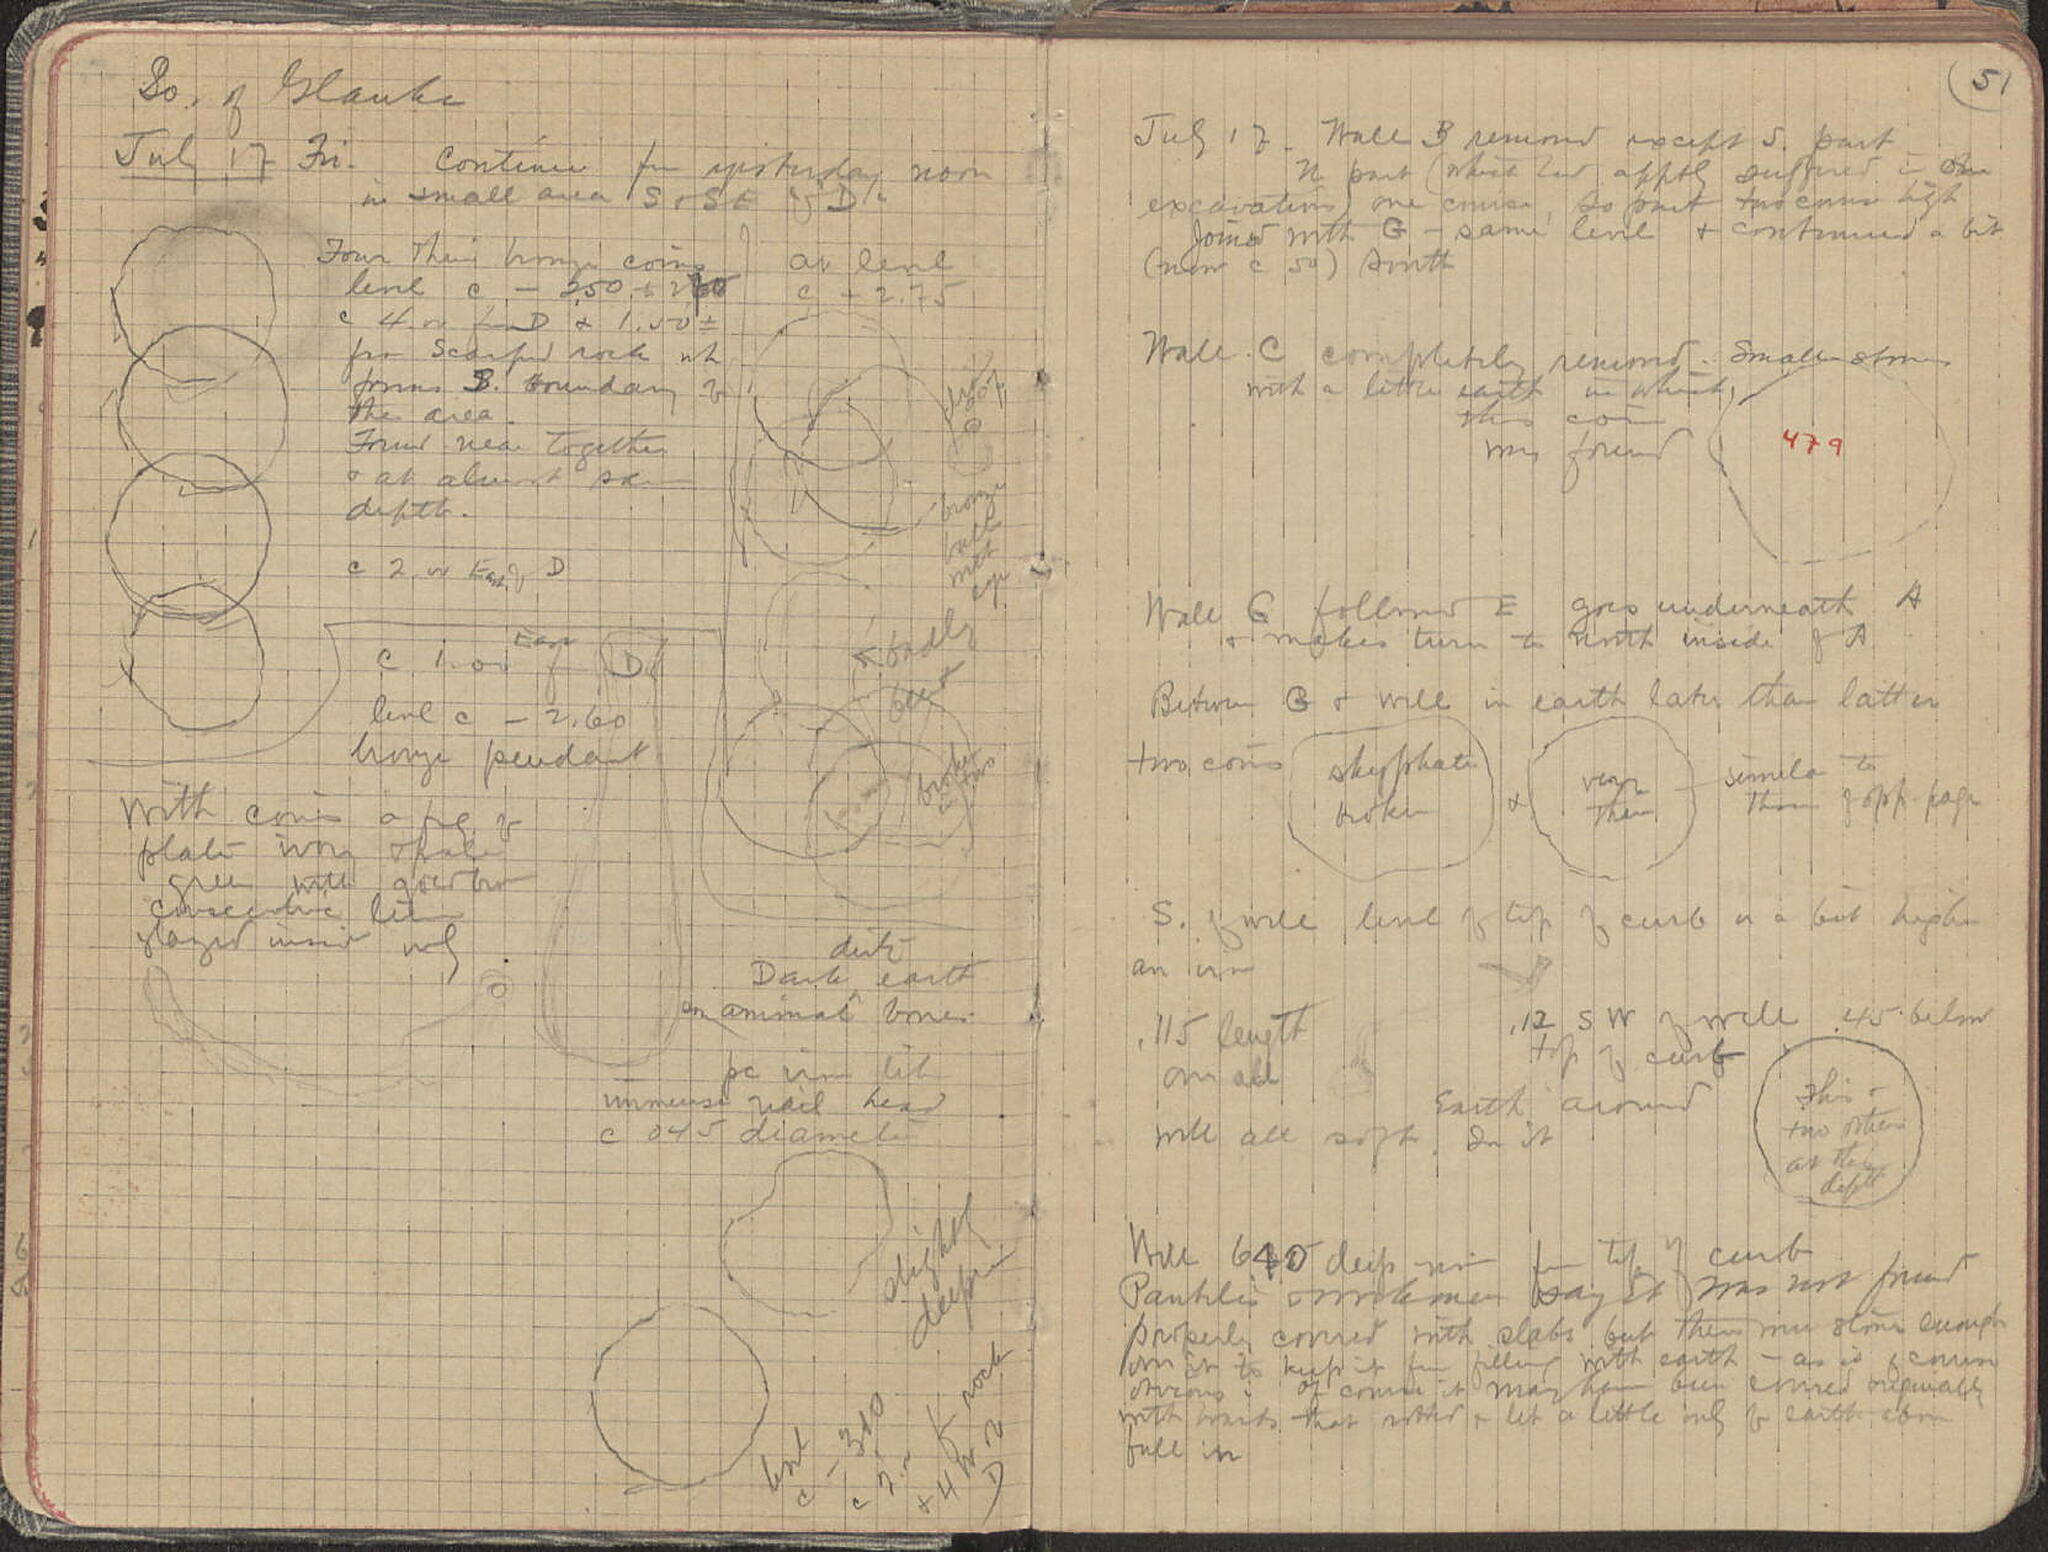 So. of Glauke
July 17 Fri. Continue from yesterday noon
in small area S & SE of D
Four thin bronze coins
level c - 2.50 ±
c 4.00 from D & 1.50 ±
from scarped rock wh
forms S. boundary of
the area.
Found near together
& at almost same
depth.
c 2.00 East of D
at level
c - 2.75
bronze
ball
with
eye
badly
bent
broken
in two
c 1.00 East from D
level c - 2.60
bronze pendant
With coins a pc of
plate ivory & pale
green with
concentric lines
glazed inside only
dirty
Dark earth
animal bones
pc iron like
immense nail head
c 045 diameter
slightly
deeper
level
c - 3.10
rock
D
51
July 17. Wall B removed except S. part
N part (which had apptly suffered in
excavation) one course, So part two courses high
Joined with G - same level & continued a bit
(now c 50) South
Wall C completely removed. Smaller stones
with a little earth in which
this coin
was found
479
Wall G followed E goes underneath A
& makes turn to north inside of A
Between G & well in earth later than latter
two coins
skyphate
broken
&
very
thin
similar to
those of opp. page
S. of well level of top of curb or a bit higher
an iron
.115 length
over all
.12 SW of well .45 below
top of curb
Earth around
well all soft. In it
this &
two others
at this
depth
Well 640 deep now from top of curb
Pantelis & workmen say it was not found
properly covered with slabs but there were stones enough
over it to keep it from filling with earth - as is of course
obvious. Of course it may have been covered originally
with boards that rotted & let a little only of earth above
fall in